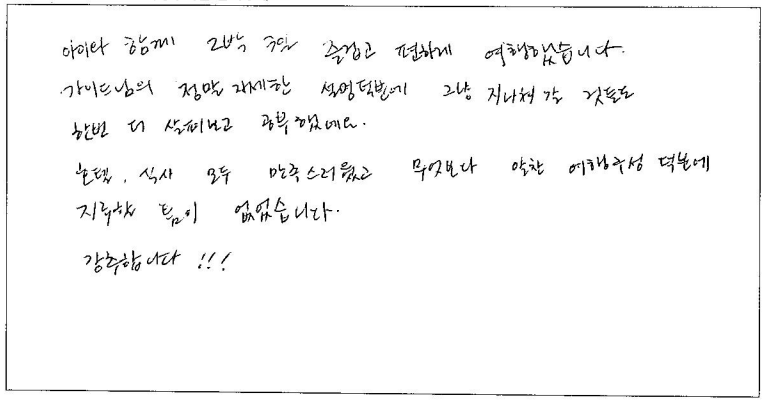 아이와 함께 2박 3일 즐겁고 편하게 여행했습니다.
가이드님의 정말 자세한 설명덕분에 그냥 지나쳐 갈 것들도
한번 더 살펴보고 공부했네요.
호텔, 식사 모두 만족스러웠고 무엇보다 알찬 여행구성 덕분에
지루할 틈이 없었습니다.
강추합니다!!!